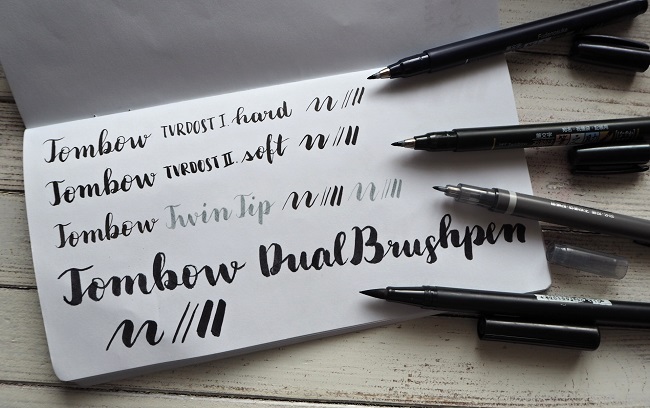 Tombow TVRDOST I. hard
Tombow TVRDOST II. soft
Tombow Twin Tip
Tombow Dual Brushpen